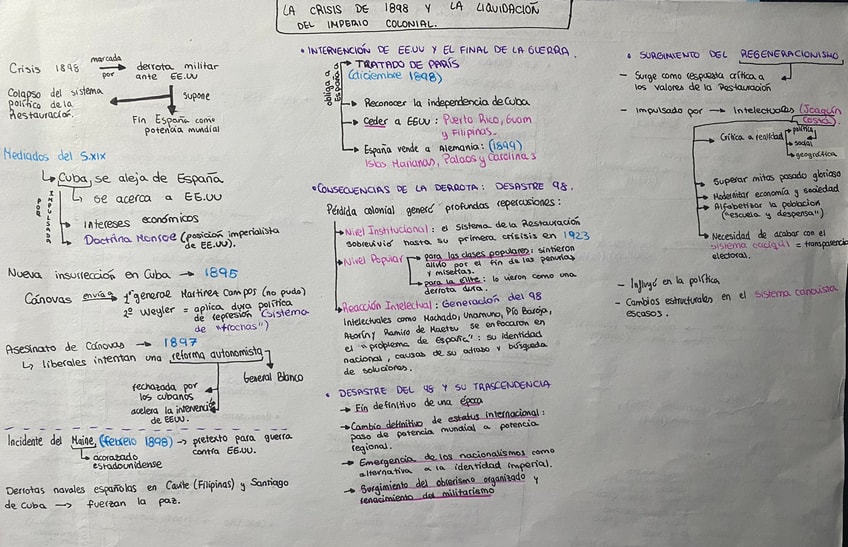 LA CRISIS DE 1898 Y LA LIQUIDACIÓN
DEL IMPERIO COLONIAL.
Crisis 1898 marcada por → derrota militar
ante EE.UU
supone
Colapso del sistema
político de la
Restauración.
Fin España como
potencia mundial
Mediados del S.XIX
Cuba, se aleja de España
se acerca a EE.UU
IMPULSADA
POR
Intereses económicos
Doctrina Monroe (posición imperialista
de EE.UU).
Nueva insurrección en Cuba → 1895
Cánovas envía → 1º general Martínez Campos (no pudo)
2º Weyler = aplica dura política
de represión (sistema
de "trochas")
Asesinato de Cánovas → 1897
↳ liberales intentan una reforma autonomista
General Blanco
rechazada por
los cubanos
acelera la intervención
de EEUU.
Incidente del Maine, (febrero 1898) → pretexto para guerra
contra EE.UU.
acorazado
estadounidense
Derrotas navales españolas en Cavite (Filipinas) y Santiago
de Cuba → fuerzan la paz.
• INTERVENCIÓN DE EEUU Y EL FINAL DE LA GUERRA.
obliga a
España a
→ TRATADO DE PARÍS
(diciembre 1898)
→ Reconocer la independencia de Cuba
→ Ceder a EEUU: Puerto Rico, Guam
y Filipinas.
→ España vende a Alemania: (1899)
Islas Marianas, Palaos y Carolinas
• CONSECUENCIAS DE LA DERROTA: DESASTRE 98.
Pérdida colonial generó profundas repercusiones:
→ Nivel Institucional: el sistema de la Restauración
sobrevivió hasta su primera crisisis en 1923
→ Nivel Popular
→ para las clases populares: sintieron
alivio por el fin de las penurias
y miserias.
→ para la élite: lo vieron como una
derrota dura.
→ Reacción Intelectual: Generación del 98
Intelectuales como Machado, Unamuno, Pío Baroja,
Azorín y Ramiro de Maeztu se enfocaron en
el "problema de España": su identidad
nacional, causas de su atraso y búsqueda
de soluciones.
• DESASTRE DEL 98 Y SU TRASCENDENCIA
→ Fin definitivo de una época
→ Cambio definitivo de estatus internacional:
paso de potencia mundial a potencia
regional.
→ Emergencia de los nacionalismos como
alternativa a la identidad imperial.
→ Surgimiento del obrerismo organizado y
renacimiento del militarismo
• SURGIMIENTO DEL REGENERACIONISMO
- Surge como respuesta crítica a
los valores de la Restauración
- Impulsado por → Intelectuales (Joaquín
Costa).
→ Crítica a realidad
política
social
geográfica
→ Superar mitos pasado glorioso
→ Modernizar economía y sociedad
→ Alfabetizar la población
("escuela y despensa")
→ Necesidad de acabar con el
sistema caciquil = transparencia
electoral.
- Influyó en la política
- Cambios estructurales en el sistema canovista
escasos.